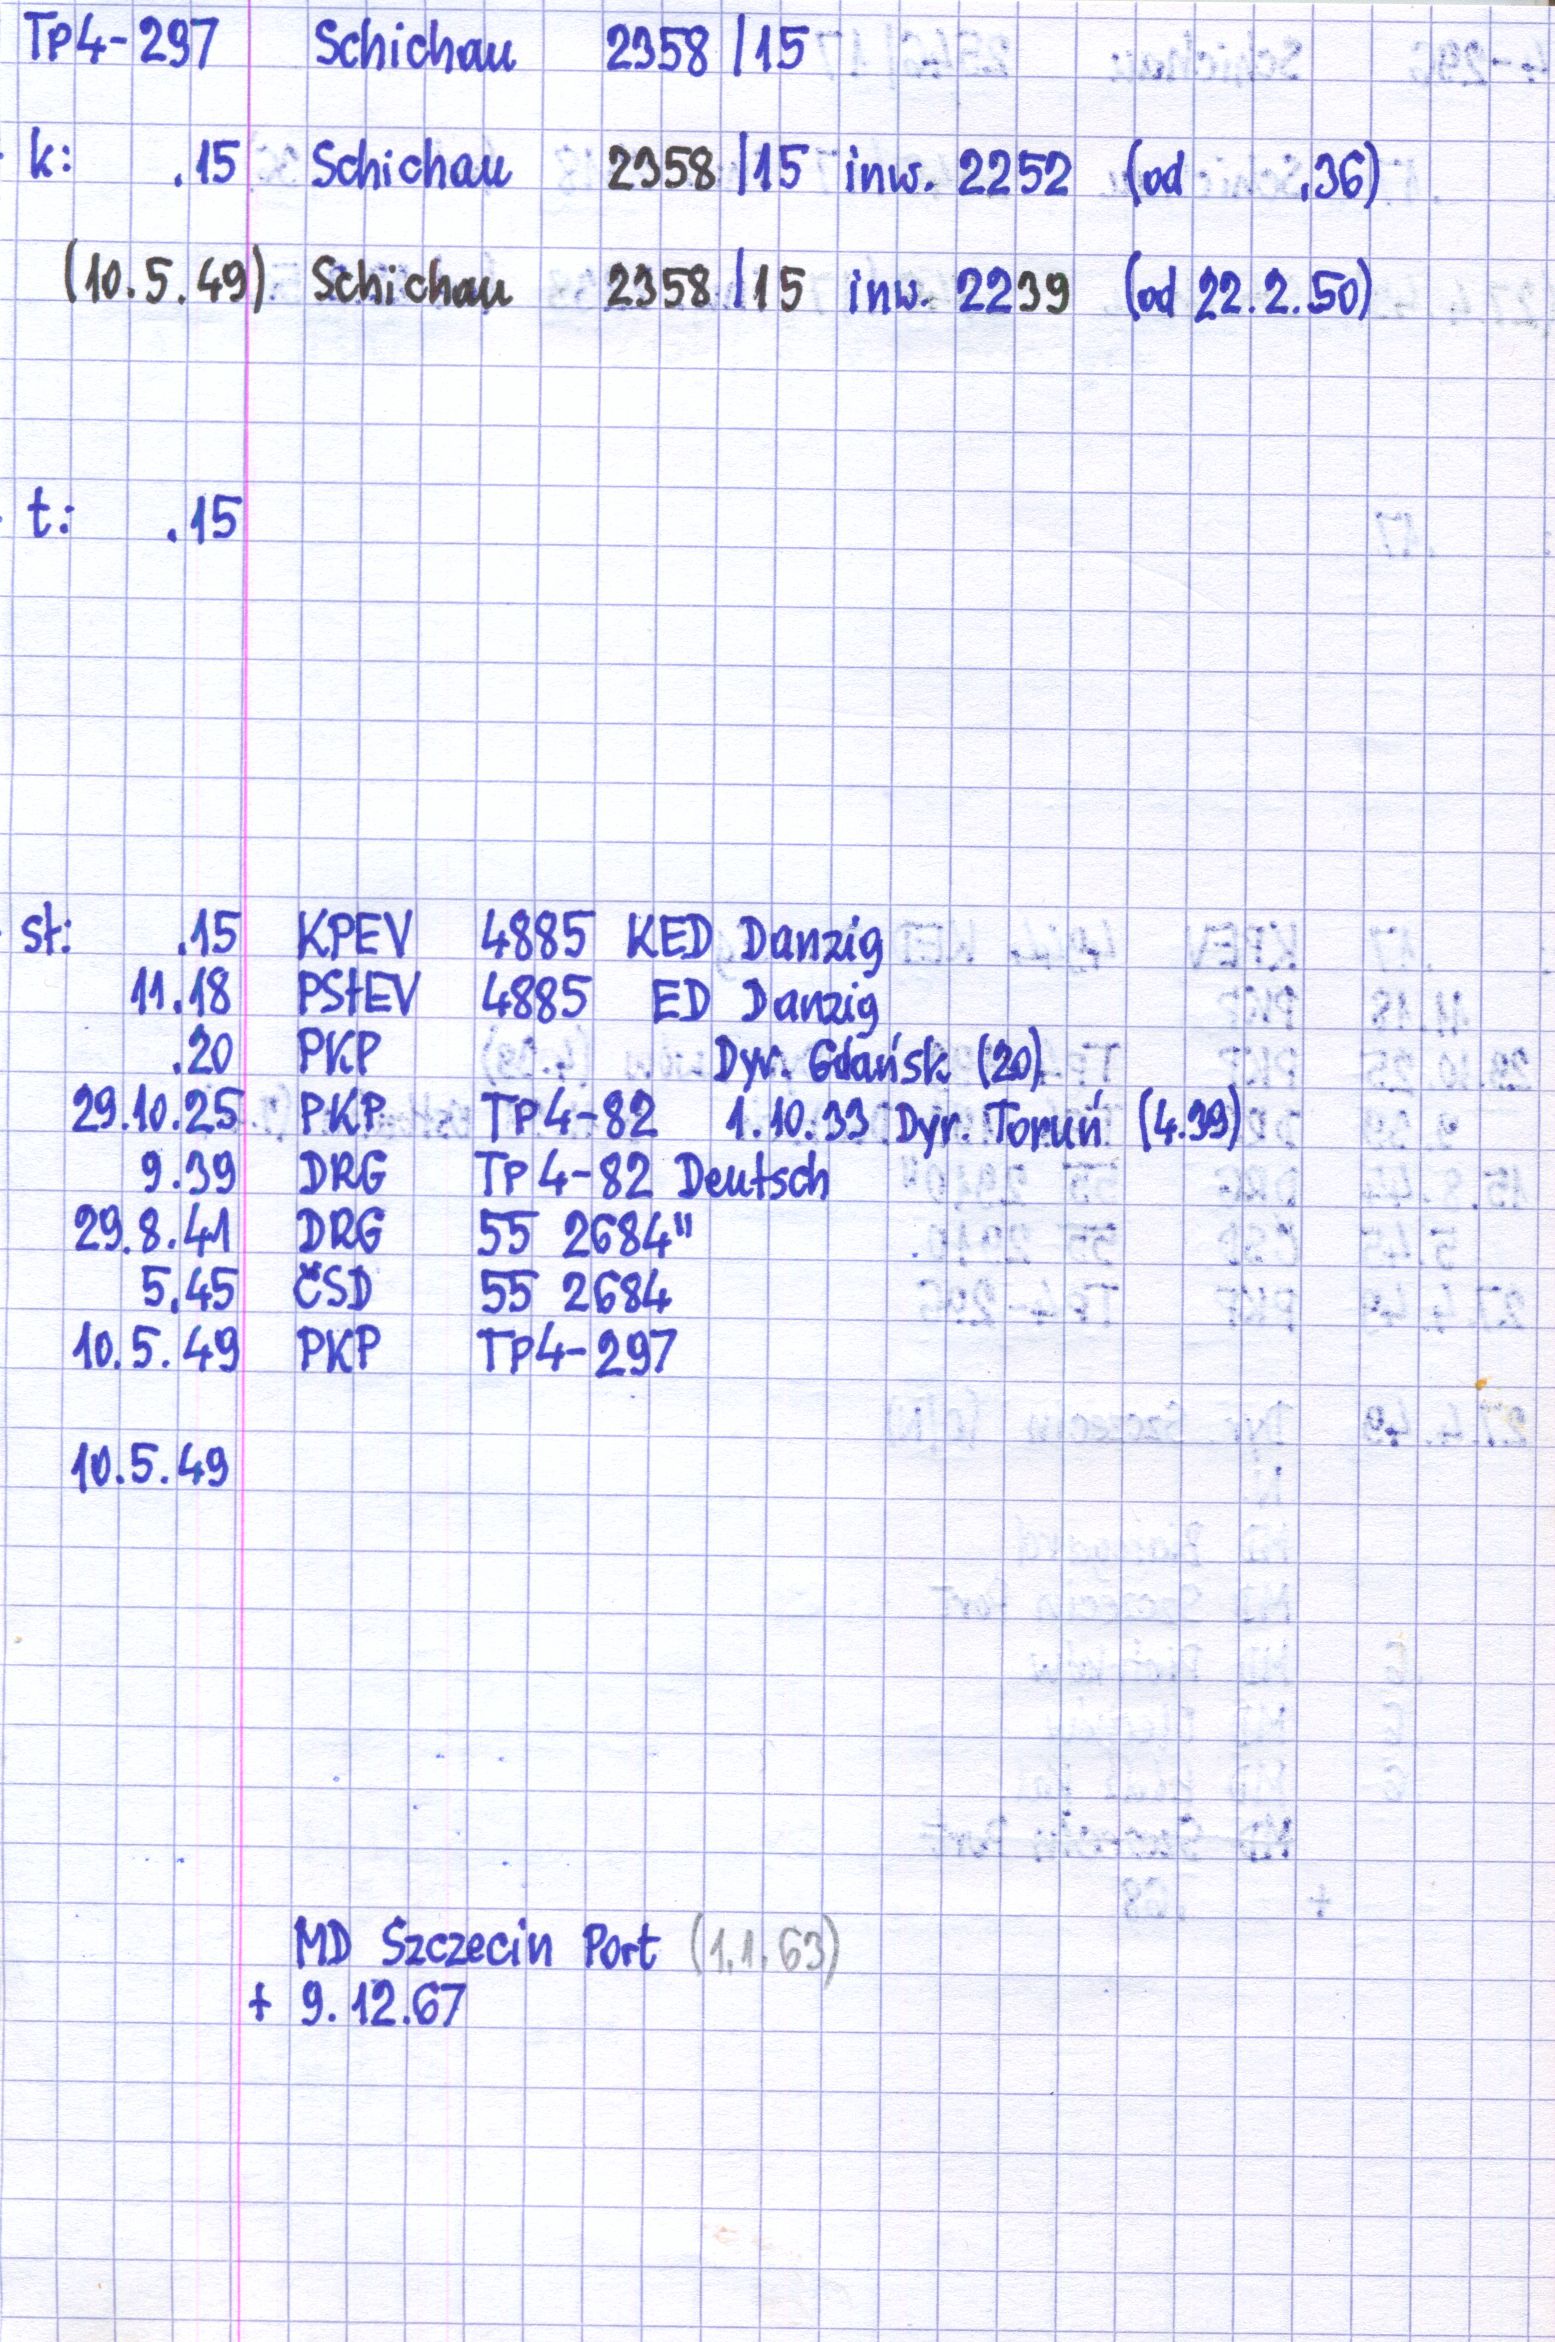 Tp4-297 Schichau 2358/15
k: .15 Schichau 2358/15 inw. 2252 (od .36)
(10.5.49) Schichau 2358/15 inw. 2239 (od 22.2.50)
t: .15
st: .15 KPEV 4885 KED Danzig
11.18 PStEV 4885 ED Danzig
.20 PKP Dyr. Gdańsk (20)
29.10.25 PKP Tp4-82 1.10.33 Dyr. Toruń (4.39)
9.39 DRG Tp4-82 Deutsch
29.8.41 DRG 55 2684"
5.45 ČSD 55 2684
10.5.49 PKP Tp4-297
10.5.49
MD Szczecin Port (1.1.63)
+ 9.12.67